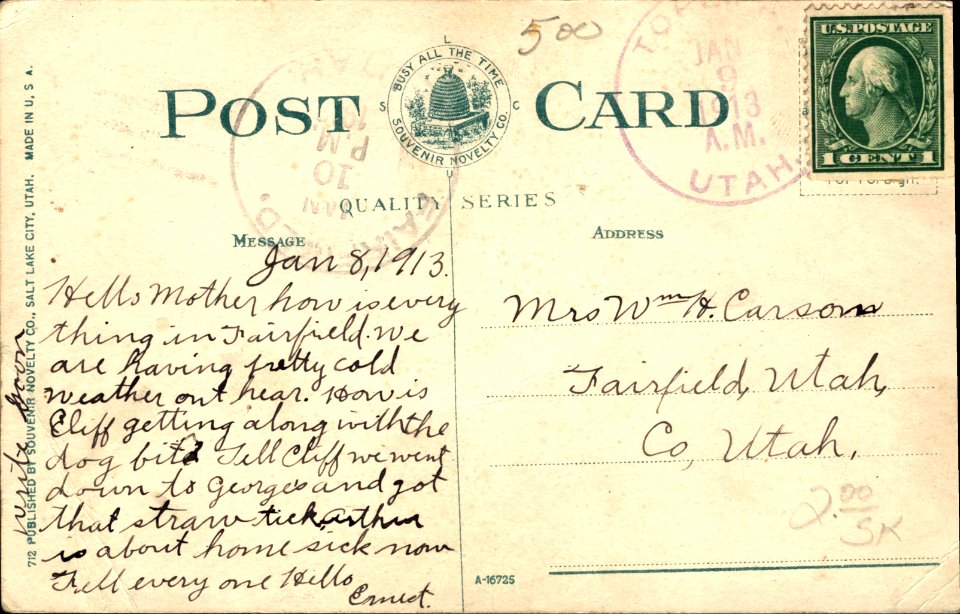 5 00
L
BUSY ALL THE TIME
S C
SOUVENIR NOVELTY CO.
U
POST CARD
QUALITY SERIES
U.S. POSTAGE
1 CENT 1
JAN
9
1913
A.M.
UTAH.
P M
10
JAN
MESSAGE
Jan 8, 1913.
Hello Mother how is every
thing in Fairfield. We
are having pretty cold
weather out hear. How is
Cliff getting along with the
dog bite Tell Cliff we went
down to Georges and got
that straw tick. Arthur
is about home sick now
Tell every one Hello
Ernest.
write soon
712 PUBLISHED BY SOUVENIR NOVELTY CO., SALT LAKE CITY, UTAH. MADE IN U, S A.
ADDRESS
Mrs Wm H. Carson
Fairfield, Utah,
Co, Utah.
2.00
SK
A-16725